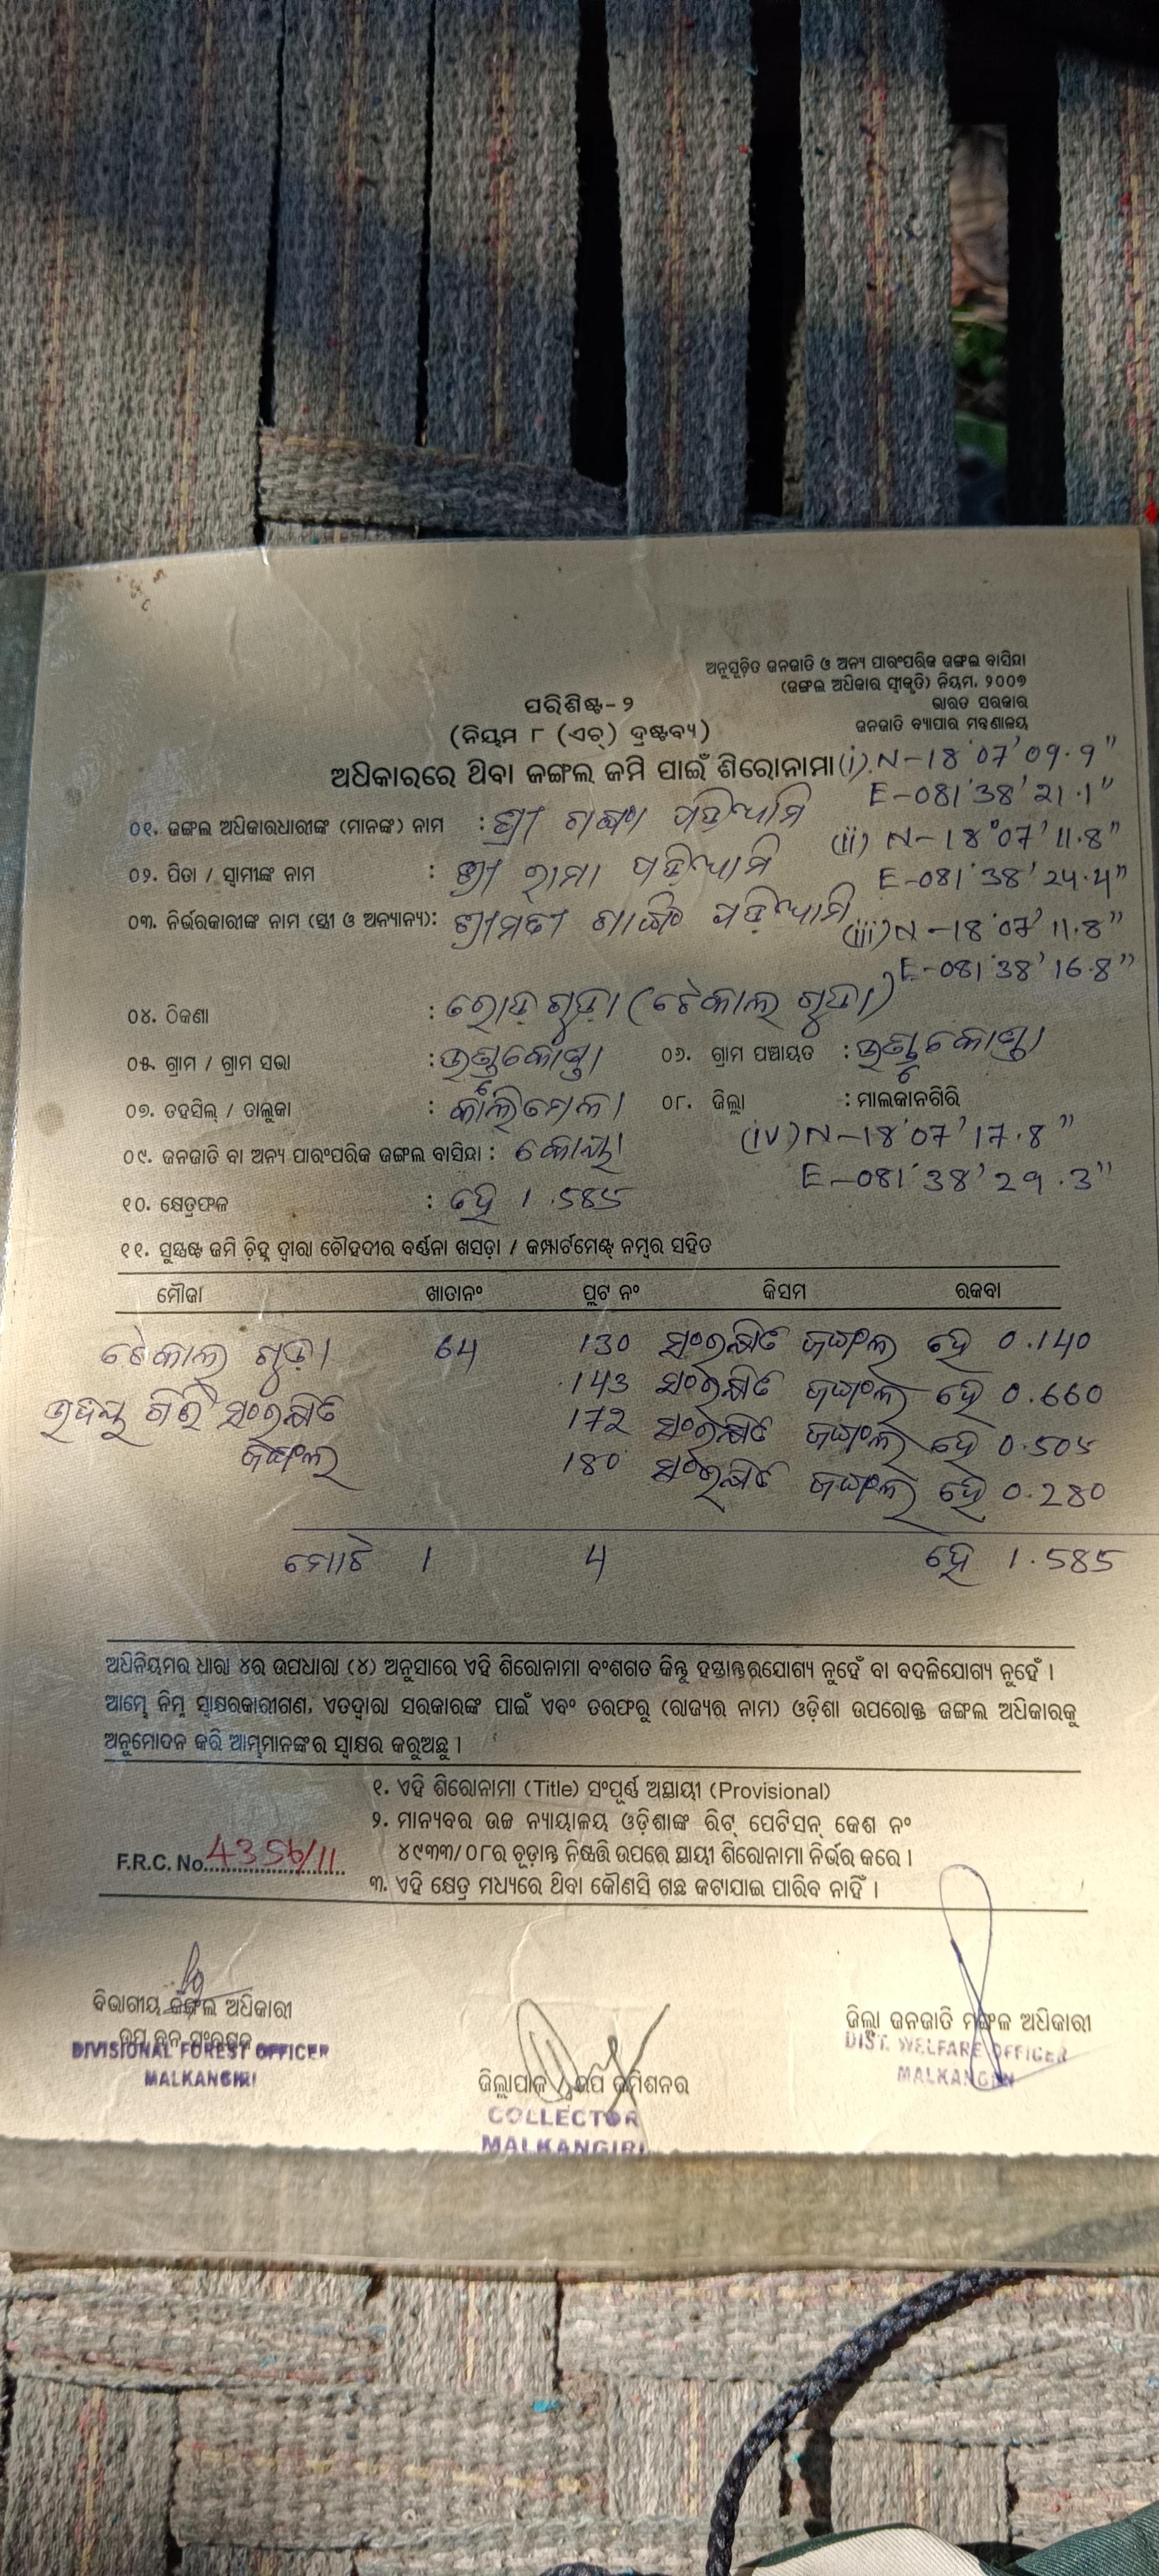 ଅନୁସୂଚିତ ଜନଜାତି ଓ ଅନ୍ୟ ପାରଂପରିକ ଜଙ୍ଗଲ ବାସିନ୍ଦା
(ଜଙ୍ଗଲ ଅଧିକାର ସ୍ୱୀକୃତି) ନିୟମ, ୨୦୦୭
ଭାରତ ସରକାର
ଜନଜାତି ବ୍ୟାପାର ମନ୍ତ୍ରଣାଳୟ
ପରିଶିଷ୍ଟ-୨
(ନିୟମ ୮ (ଏଚ୍) ଦ୍ରଷ୍ଟବ୍ୟ)
ଅଧିକାରରେ ଥିବା ଜଙ୍ଗଲ ଜମି ପାଇଁ ଶିରୋନାମା
(i) N-18°07'09.9"
E-081°38'21.1"
୦୧. ଜଙ୍ଗଲ ଅଧିକାରଧାରୀଙ୍କ (ମାନଙ୍କ) ନାମ : ଶ୍ରୀ ପଡ଼ିଆମି
(ii) N-18°07'11.8"
E-081°38'24.4"
୦୨. ପିତା / ସ୍ୱାମୀଙ୍କ ନାମ : ଶ୍ରୀ ରାମା ପଡ଼ିଆମି
୦୩. ନିର୍ଭରକାରୀଙ୍କ ନାମ (ସ୍ତ୍ରୀ ଓ ଅନ୍ୟାନ୍ୟ): ଶ୍ରୀମତୀ ପଡ଼ିଆମି
(iii) N-18°07'11.8"
E-081°38'16.8"
୦୪. ଠିକଣା : ରୋଡ଼ଗୁଡ଼ା (ଟେକାଲ ଗୁଡା)
୦୫. ଗ୍ରାମ / ଗ୍ରାମ ସଭା : ୦୬. ଗ୍ରାମ ପଞ୍ଚାୟତ :
୦୭. ତହସିଲ୍ / ତାଲୁକା : କାଲିମେଳା ୦୮. ଜିଲ୍ଲା : ମାଲକାନଗିରି
(iv) N-18°07'17.8"
E-081°38'29.3"
୦୯. ଜନଜାତି ବା ଅନ୍ୟ ପାରଂପରିକ ଜଙ୍ଗଲ ବାସିନ୍ଦା : କୋୟା
୧୦. କ୍ଷେତ୍ରଫଳ : ହେ 1.585
୧୧. ସୁସ୍ପଷ୍ଟ ଜମି ଚିହ୍ନ ଦ୍ୱାରା ଚୌହଦୀର ବର୍ଣ୍ଣନା ଖସଡ଼ା / କମ୍ପାର୍ଟମେଣ୍ଟ୍ ନମ୍ବର ସହିତ
ମୌଜା ଖାତାନଂ ପ୍ଲଟ ନଂ କିସମ ରକବା
ଟେକାଲ ଗୁଡ଼ା 64 130 ସଂରକ୍ଷିତ ଜଙ୍ଗଲ ହେ 0.140
143 ସଂରକ୍ଷିତ ଜଙ୍ଗଲ ହେ 0.660
ଉଦୟ ଗିରି ସଂରକ୍ଷିତ 172 ସଂରକ୍ଷିତ ଜଙ୍ଗଲ ହେ 0.505
ଜଙ୍ଗଲ 180 ସଂରକ୍ଷିତ ଜଙ୍ଗଲ ହେ 0.280
ମୋଟ 1 4 ହେ 1.585
ଅଧିନିୟମର ଧାରା ୪ର ଉପଧାରା (୪) ଅନୁସାରେ ଏହି ଶିରୋନାମା ବଂଶଗତ କିନ୍ତୁ ହସ୍ତାନ୍ତରଯୋଗ୍ୟ ନୁହେଁ ବା ବଦଳିଯୋଗ୍ୟ ନୁହେଁ ।
ଆମ୍ଭେ ନିମ୍ନ ସ୍ୱାକ୍ଷରକାରୀଗଣ, ଏତଦ୍ୱାରା ସରକାରଙ୍କ ପାଇଁ ଏବଂ ତରଫରୁ (ରାଜ୍ୟର ନାମ) ଓଡ଼ିଶା ଉପରୋକ୍ତ ଜଙ୍ଗଲ ଅଧିକାରକୁ
ଅନୁମୋଦନ କରି ଆମ୍ଭମାନଙ୍କର ସ୍ୱାକ୍ଷର କରୁଅଛୁ ।
୧. ଏହି ଶିରୋନାମା (Title) ସଂପୂର୍ଣ୍ଣ ଅସ୍ଥାୟୀ (Provisional)
୨. ମାନ୍ୟବର ଉଚ୍ଚ ନ୍ୟାୟାଳୟ ଓଡ଼ିଶାଙ୍କ ରିଟ୍ ପେଟିସନ୍ କେଶ ନଂ
୪୯୩୩/୦୮ର ଚୂଡ଼ାନ୍ତ ନିଷ୍ପତ୍ତି ଉପରେ ସ୍ଥାୟୀ ଶିରୋନାମା ନିର୍ଭର କରେ ।
F.R.C. No. 4356/11
୩. ଏହି କ୍ଷେତ୍ର ମଧ୍ୟରେ ଥିବା କୌଣସି ଗଛ କଟାଯାଇ ପାରିବ ନାହିଁ ।
ବିଭାଗୀୟ ଜଙ୍ଗଲ ଅଧିକାରୀ
DIVISIONAL FOREST OFFICER
MALKANGIRI
ଜିଲ୍ଲାପାଳ / ଉପ କମିଶନର
COLLECTOR
MALKANGIRI
ଜିଲ୍ଲା ଜନଜାତି ମଙ୍ଗଳ ଅଧିକାରୀ
DIST. WELFARE OFFICER
MALKANGIRI